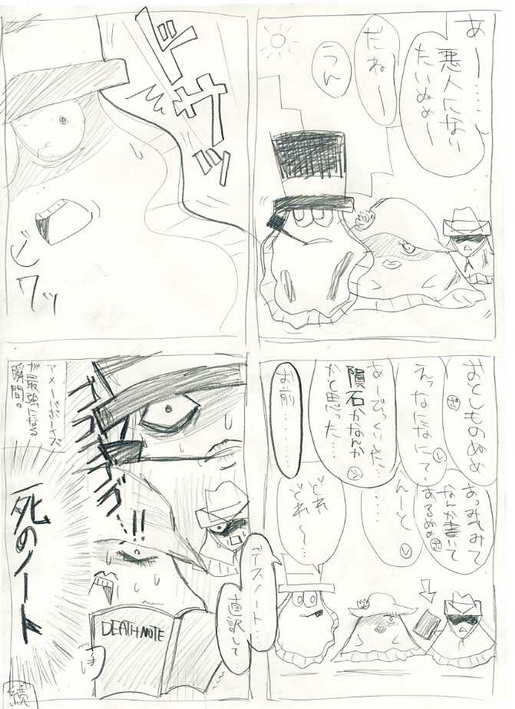 あー……
悪人にない
たいぬぬー
だねー
うん
ドッ
サッ
ビクッ
おとしものぬぬ
えっなになにて、
あーびっくいた
隕石かなんか
かと思った…
お前……
あっみてみて
なんか書いて
あるぬぬ
んーと
……
どれ
どれ〜…
デスノート…
直訳して
!!
死のノート
DEATH NOTE
アメーバボーズ
が最強になる
瞬間の
続